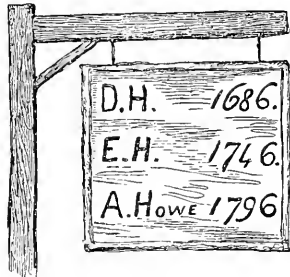 D.H. 1686.
E.H. 1746.
A. HOWE 1796